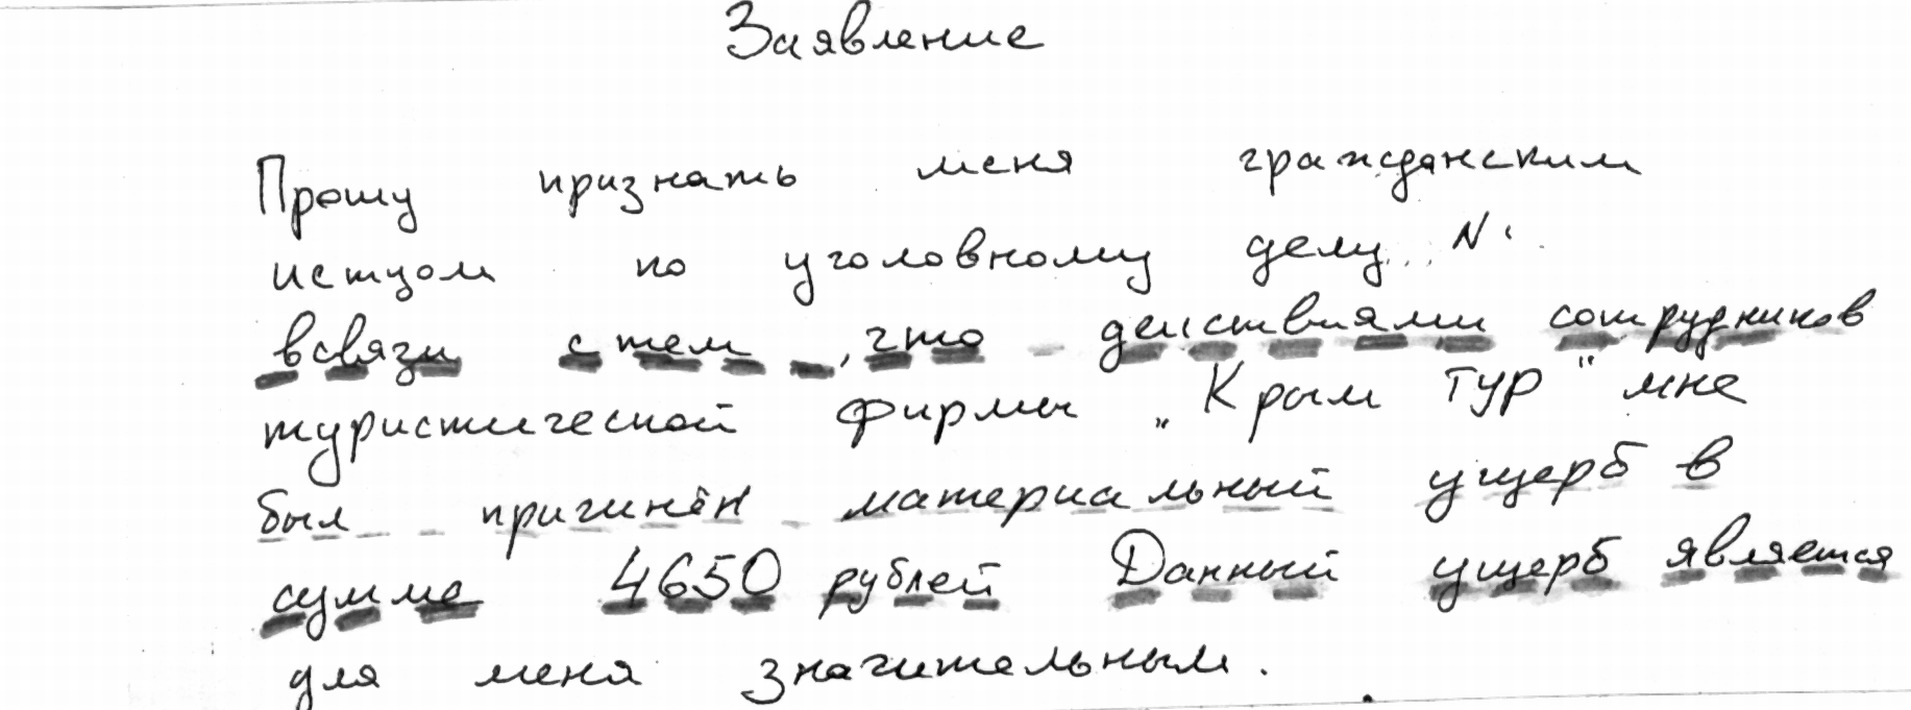 Заявление
Прошу признать меня гражданским
истцом по уголовному делу N
всвязи с тем, что действиями сотрудников
туристической фирмы „Крым ТУР" мне
был причинён материальный ущерб в
сумме 4650 рублей Данный ущерб является
для меня значительным.